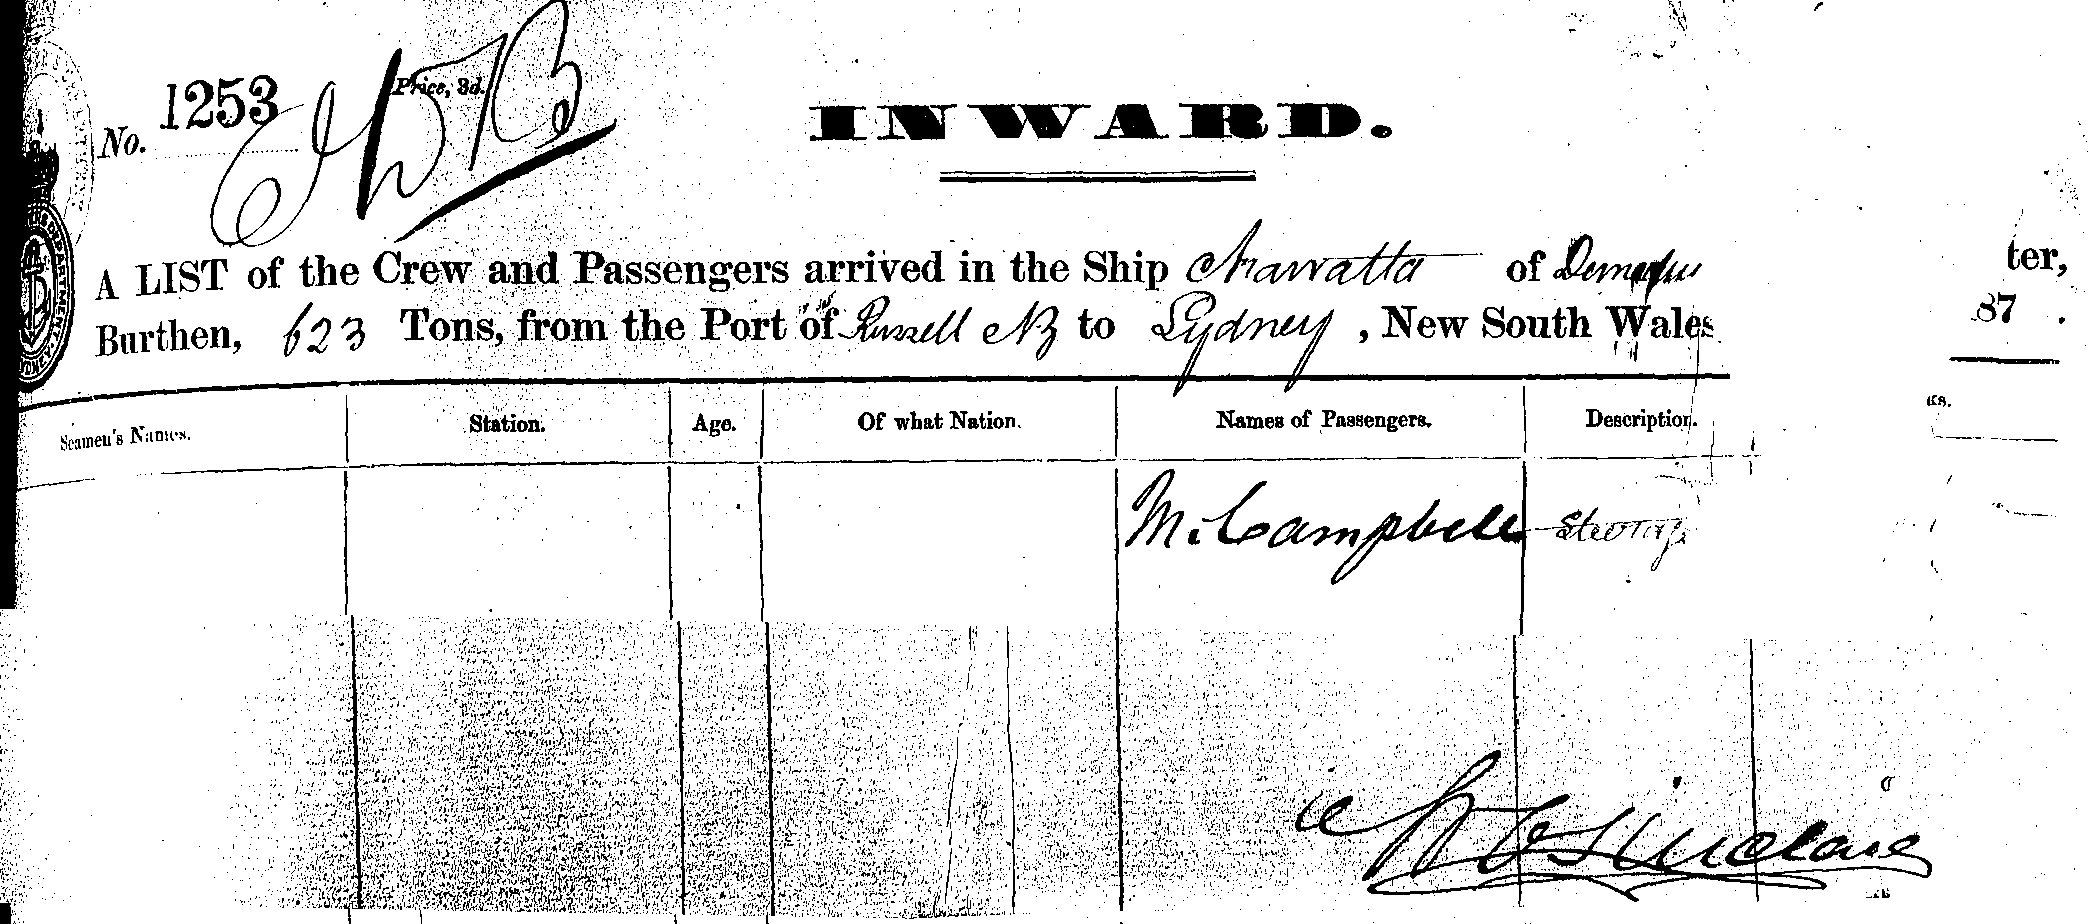 No. 1253
Price, 3d.
INWARD.
A LIST of the Crew and Passengers arrived in the Ship Charratta of ter,
Burthen, 623 Tons, from the Port of Russell NZ to Sydney, New South Wales 87 .
Seamen's Names. Station. Age. Of what Nation. Names of Passengers. Description. ks.
M. Campbell
Sinclair